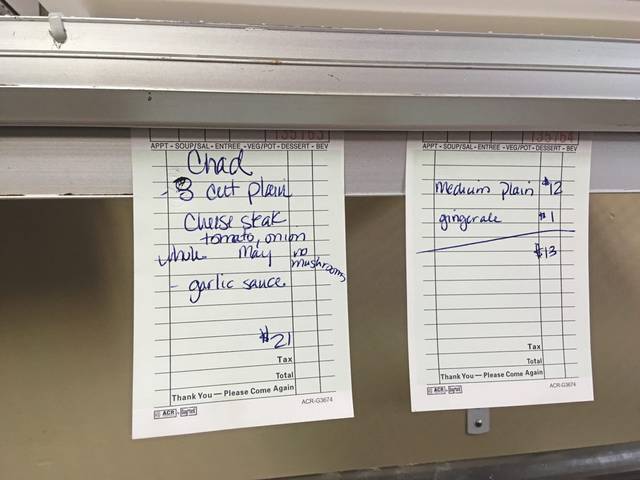 135763
APPT - SOUP/SAL - ENTREE - VEG/POT - DESSERT - BEV
Chad
- 8 cut plain
Cheese steak
tomato, onion
whole May no
mushrooms
- garlic sauce
$21
Tax
Total
Thank You — Please Come Again
ACR
ACR-G3674
135764
APPT - SOUP/SAL - ENTREE - VEG/POT - DESSERT - BEV
medium plain $12
gingerale $1
$13
Tax
Total
Thank You — Please Come Again
ACR
ACR-G3674